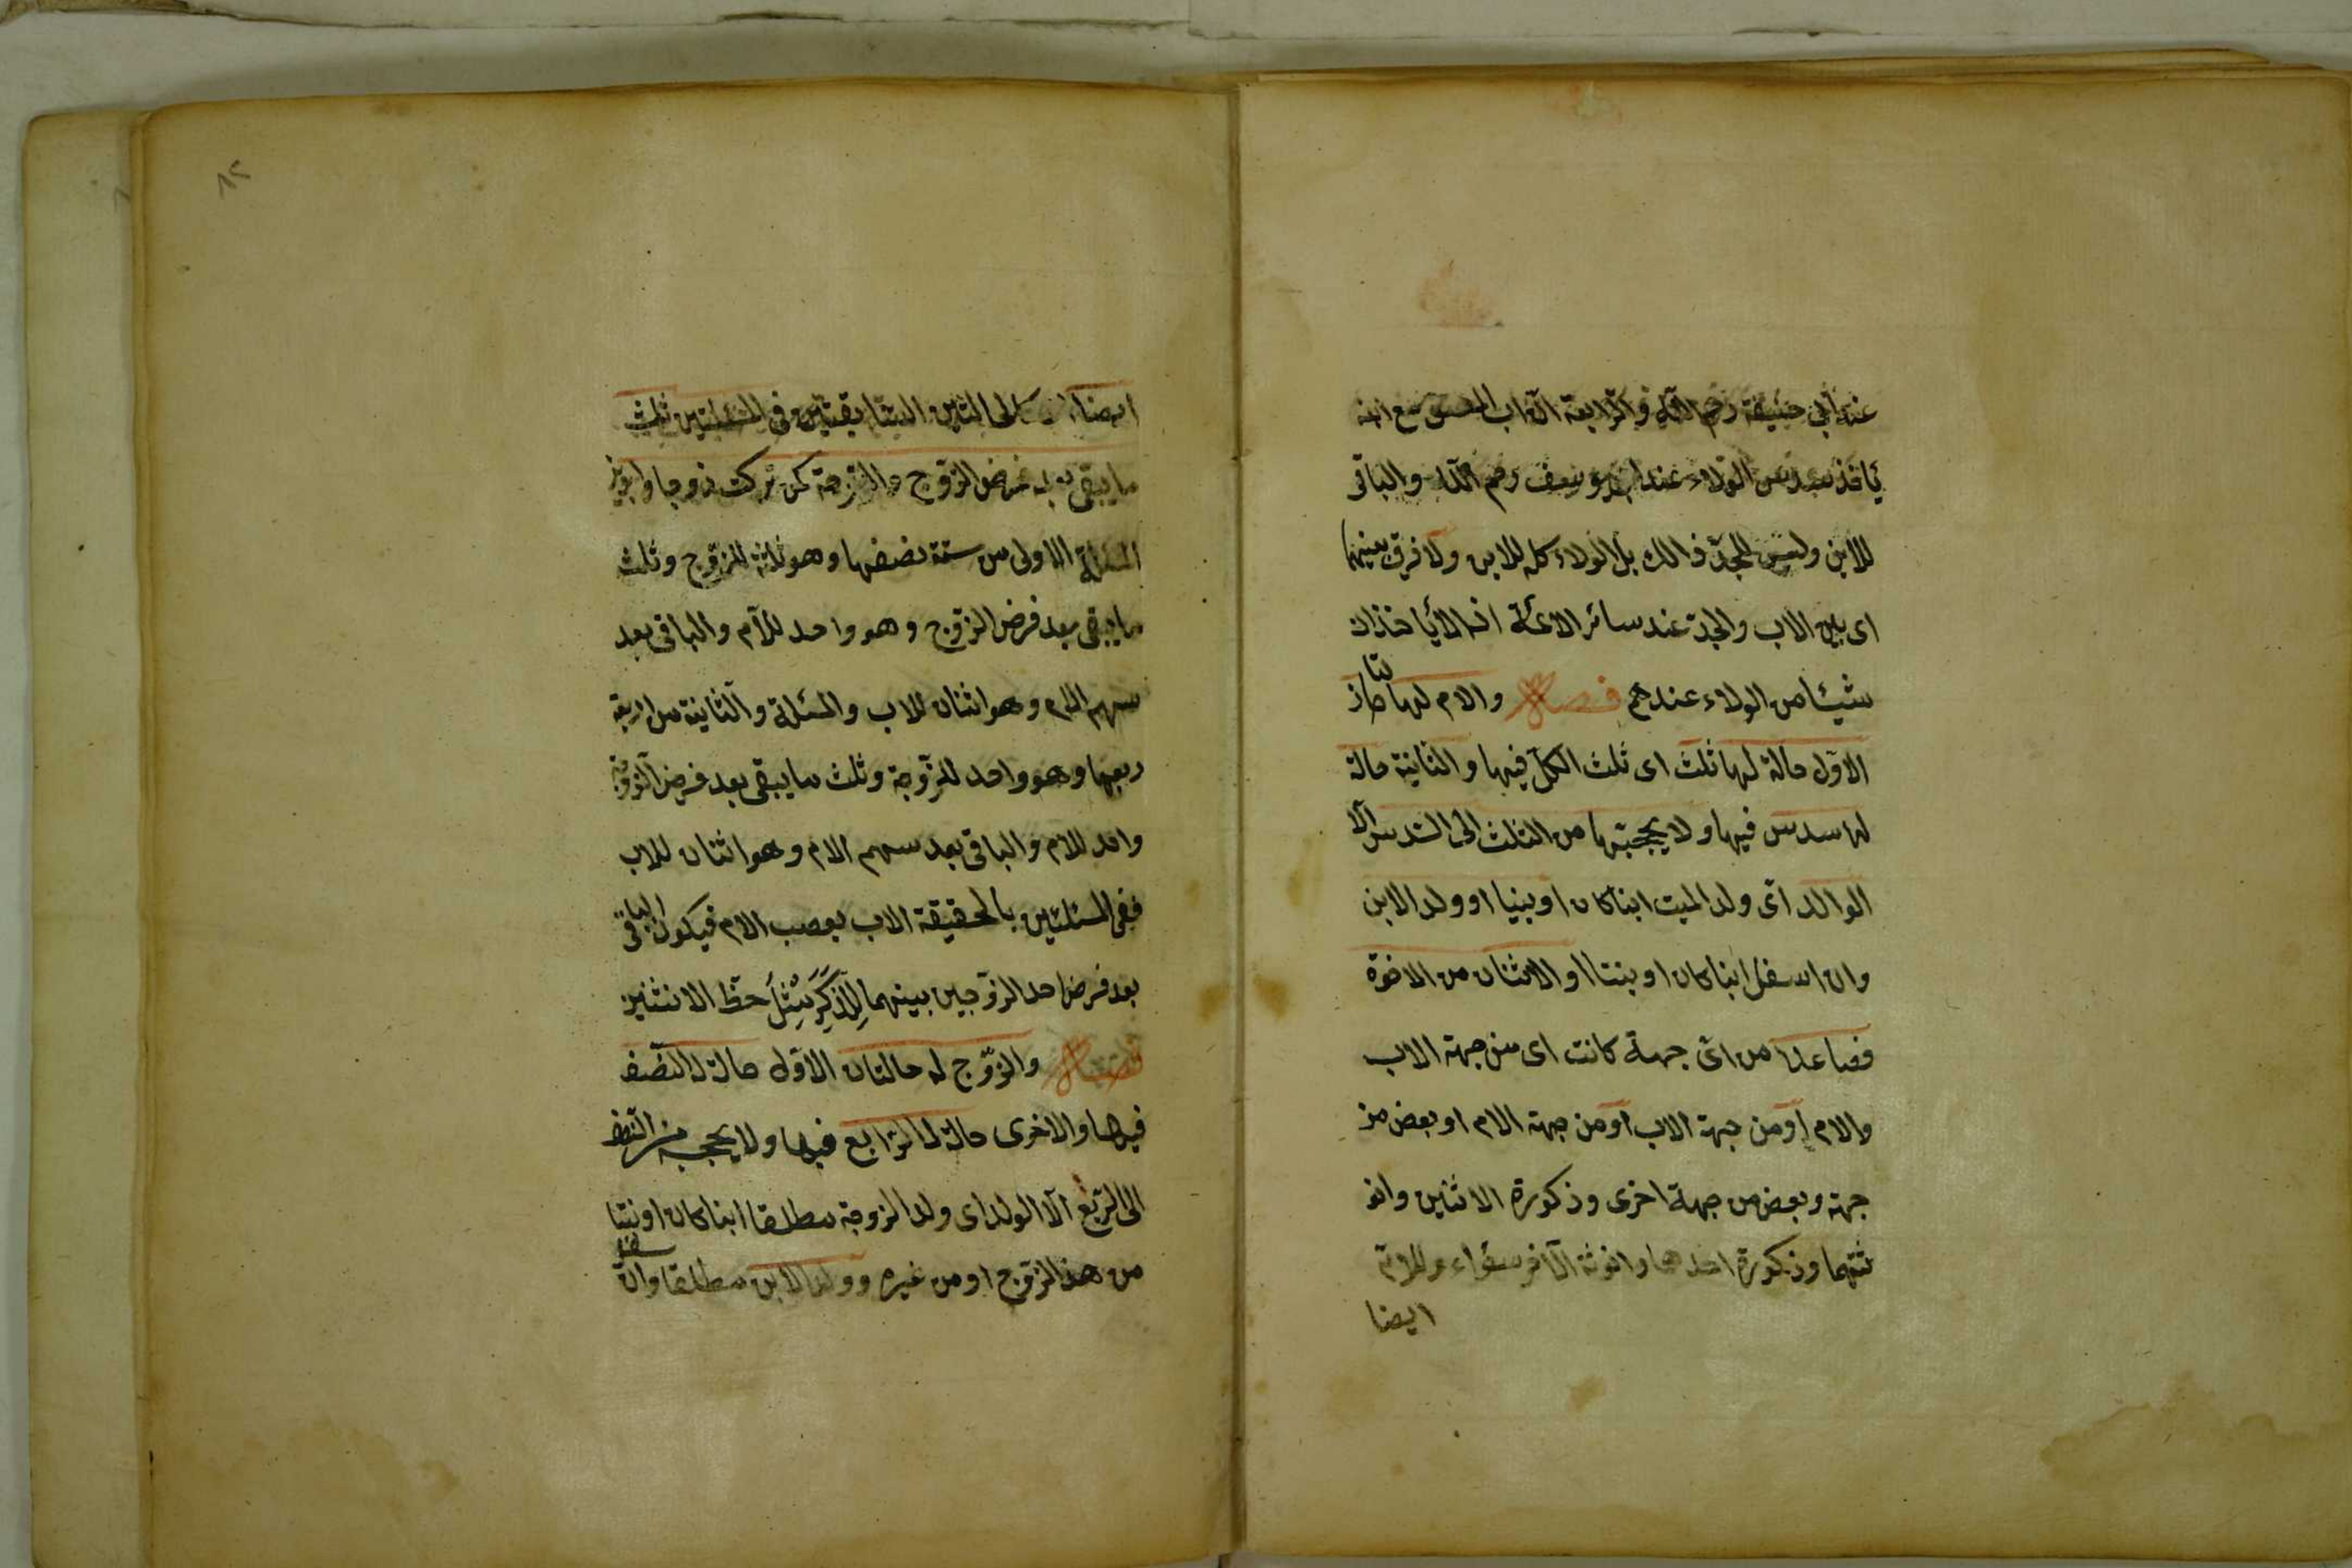 عند أبي حنيفة رحم الله والرابعة ان اب المعتق مع ابنه
يأخذ سدس الولاء عند ابي يوسف رحم الله والباقي
للابن وليس للجد ذالك بل الولاء كله للابن ولا فرق بينهما
اى بين الاب والجد عند سائر الائمة اذ لا يأخذان
شيئا من الولاء عندهم فصل والام لها حالتان
الاول حالة لها ثلث اى ثلث الكل فيها والثانية حالة
لها سدس فيها ولا يحجبها من الثلث الى السدس الا
الوالد اى ولد الميت ابنا كان او بنتا او ولد الابن
وان اسفل ابنا كان او بنتا او الاثنان من الاخوة
فصاعدا من اى جهة كانت اى من جهة الاب
والام او من جهة الاب او من جهة الام او بعض من
جهة وبعض من جهة اخرى وذكورة الاثنين وانو
ثتهما وذكورة احدهما وانوثة الآخر سواء وللام
ايضا
٨٢
ايضا المسئلتين ثلث
ما يبقى بعد فرض الزوج والزوجة كمن تركت زوجا وابوين
المسئلة الاولى من ستة نصفها وهو ثلثة للزوج وثلث
ما يبقى بعد فرض الزوج وهو واحد للام والباقي بعد
سهم الام وهو اثنان للاب والمسئلة والثانية من اربعة
ربعها وهو واحد للزوجة وثلث ما يبقى بعد فرض الزوجة
واحد للام والباقي بعد سهم الام وهو اثنان للاب
ففي المسئلتين بالحقيقة الاب يعصب الام فيكون الباقي
بعد فرض احد الزوجين بينهما للذكر مثل حظ الانثيين
فصل والزوج له حالتان الاول حالة له النصف
فيها والاخرى حالة له الرابع فيها ولا يحجبه من النصف
الى الربع الا الولد اى ولد الزوجة مطلقا ابنا كان او بنتا
من هذا الزوج او من غيره وولد الابن مطلقا وان سفل